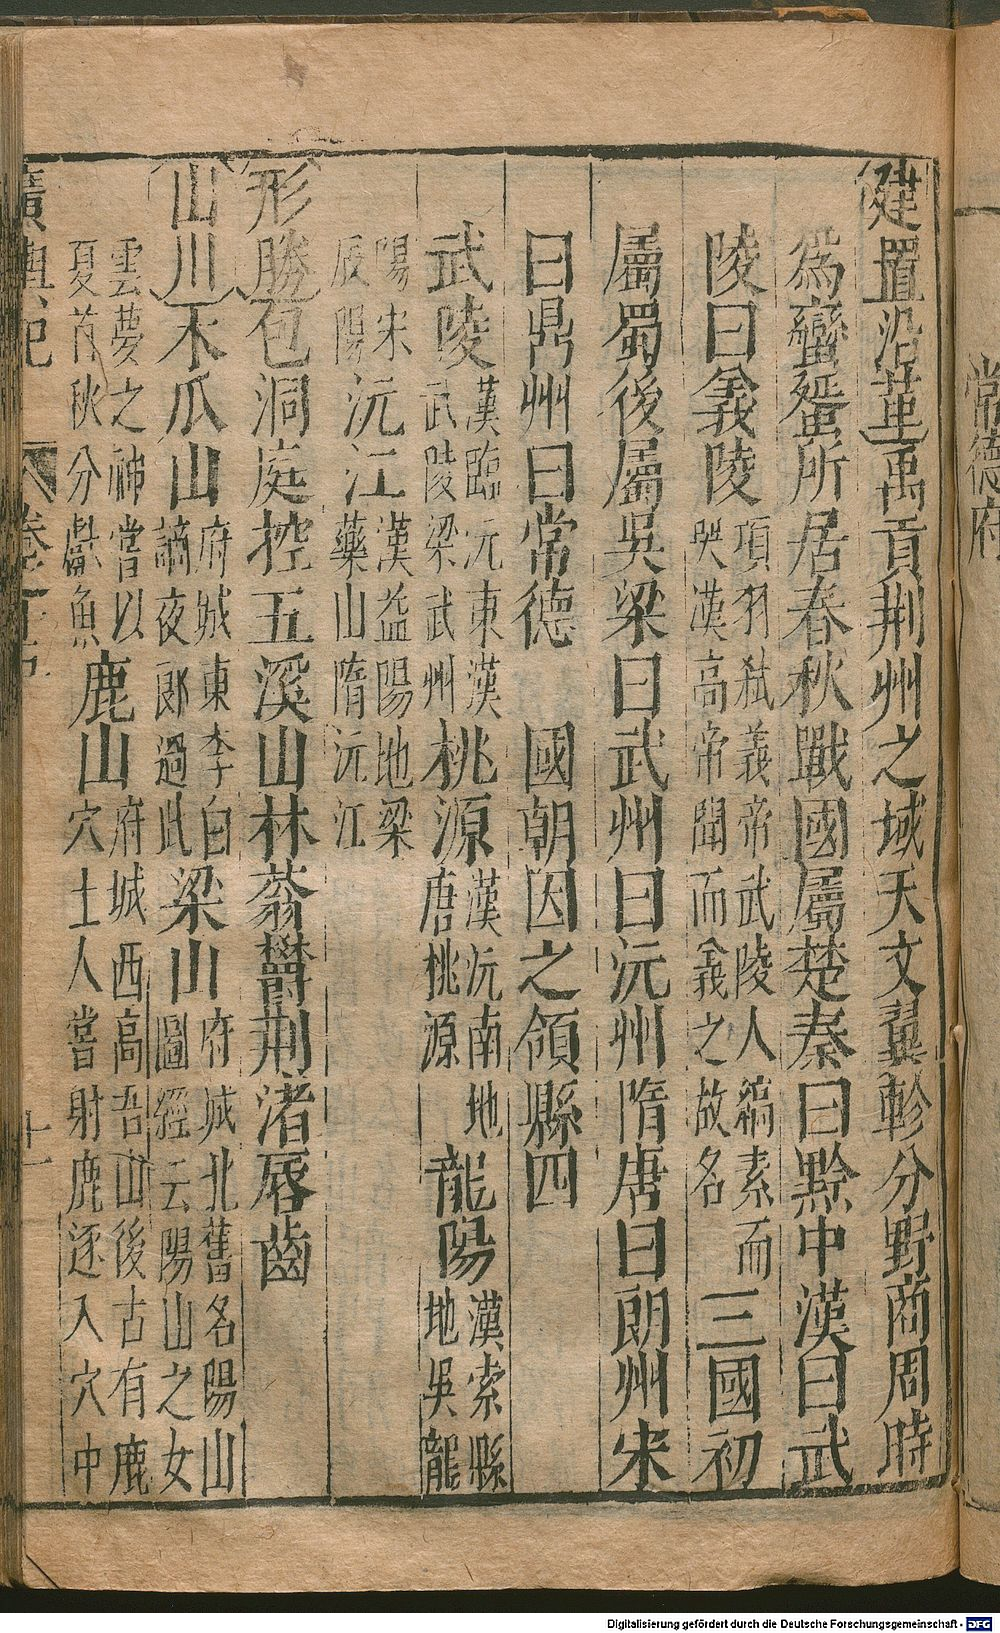 常德府
建置沿革禹貢荆州之域天文翼軫分野商周時
為蠻蜑所居春秋戰國屬楚秦曰黔中漢曰武
陵曰義陵項羽弑義帝武陵人縞素而哭漢高帝聞而義之故名三國初
屬蜀後屬吳梁曰武州曰沅州隋唐曰朗州宋
曰鼎州曰常德 國朝因之領縣四
武陵漢臨沅東漢武陵梁武州桃源漢沅南地唐桃源龍陽漢索縣地吳龍
陽宋辰陽沅江漢益陽地梁藥山隋沅江
形勝包洞庭控五溪山林蓊鬱荆渚唇齒
山川木瓜山府城東李白謫夜郎過此梁山府城北舊名陽山圖經云陽山之女
雲夢之神嘗以夏首秋分獻魚鹿山府城西高吾山後古有鹿穴土人嘗射鹿逐入穴中
廣輿記 卷之十四 十一
Digitalisierung gefördert durch die Deutsche Forschungsgemeinschaft - DFG